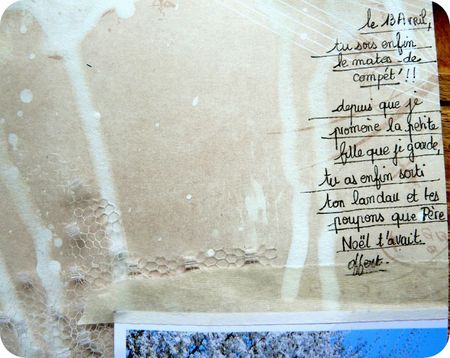 le 13 Avril,
tu sors enfin
le matos de
compét' !!
depuis que je
promène la petite
fille que je garde,
tu as enfin sorti
ton landau et tes
poupons que Père
Noël t'avait
offert.